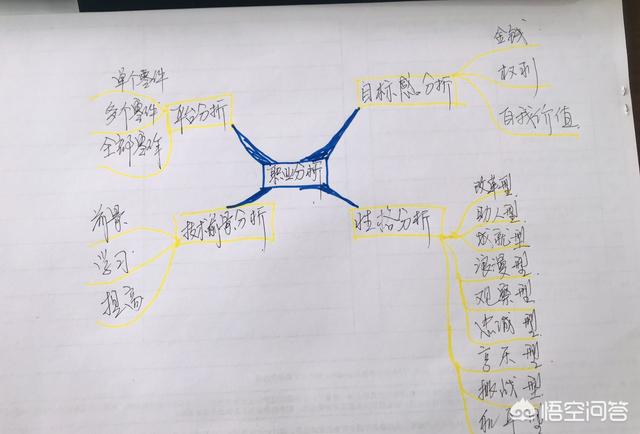 职业分析
平台分析
单个零件
多个零件
全部零件
目标感分析
金钱
权利
自我价值
技术前景分析
前景
学习
提高
性格分析
改革型
助人型
成就型
浪漫型
观察型
忠诚型
享乐型
挑战型
和平型
悟空问答